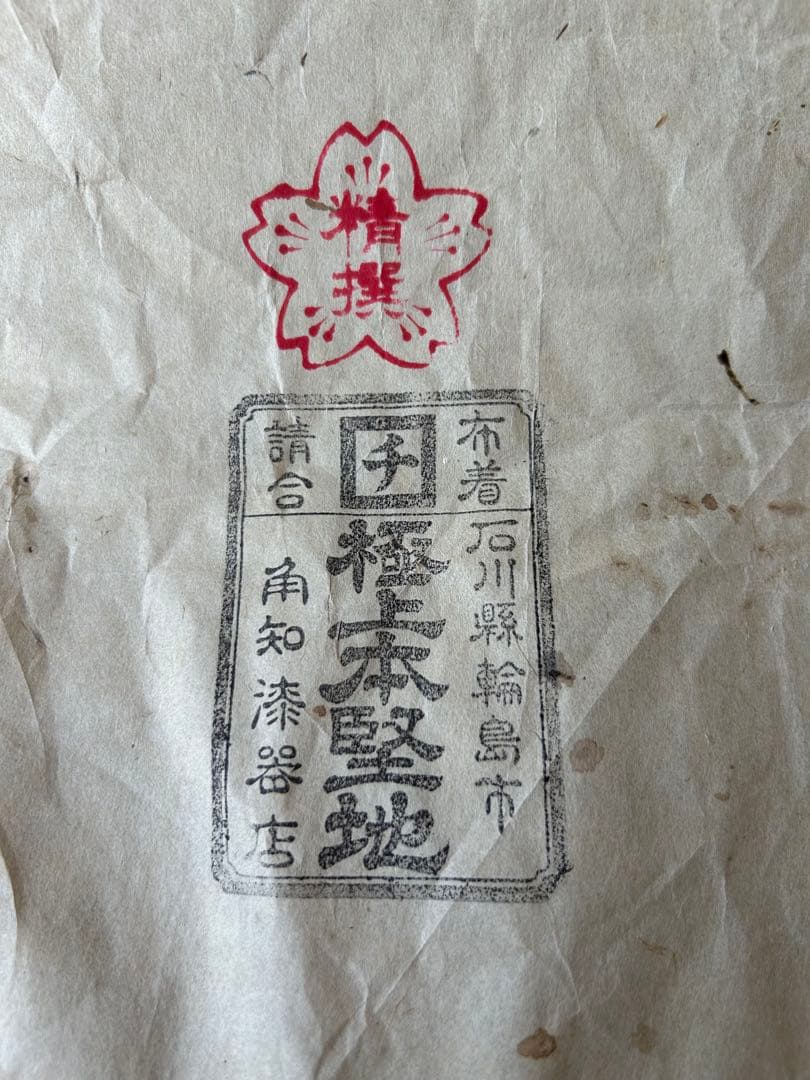 精撰
布着
チ
請合
石川縣輪島市
極上本堅地
角知漆器店